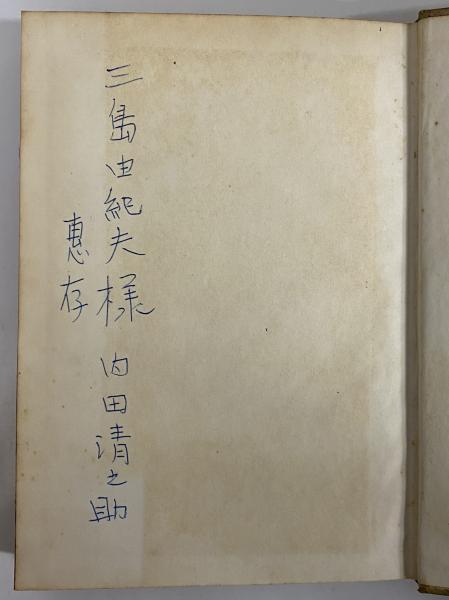 三島由紀夫様
惠存
内田清之助